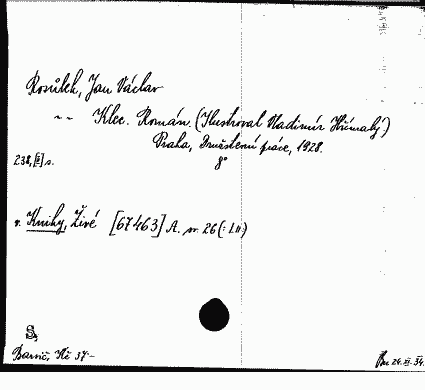 Rosůlek, Jan Václav
-- Klec. Román. (Ilustroval Vladimír Hřímalý)
Praha, Družstevní práce, 1928.
238, [II] s. 8°
v. Knihy, Živé [67463] A. sv. 26 (: LII:)
S.
Barvič, Kč 37-
24. XI. 34.